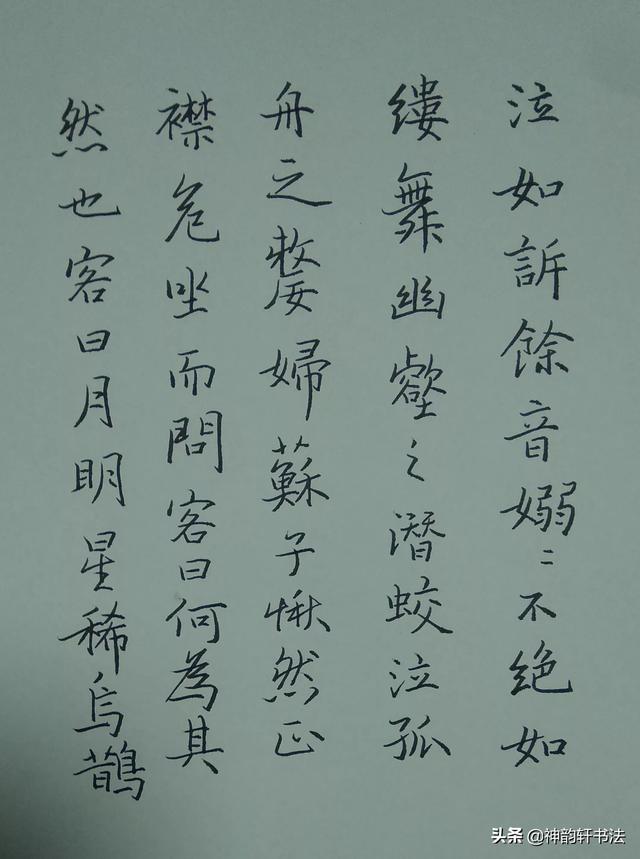 泣如訴餘音嫋〻不绝如
缕舞幽壑之潛蛟泣孤
舟之嫠婦蘇子愀然正
襟危坐而問客曰何為其
然也客曰月明星稀烏鵲
头条 @神韵轩书法